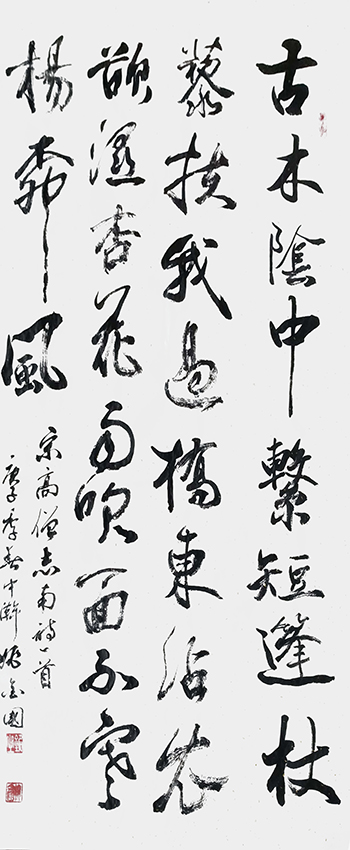 古木陰中繫短篷杖
藜扶我過橋東沾衣
欲濕杏花雨吹面不寒
楊柳風
宋高僧志南詩一首
庚子季春中澣 金國